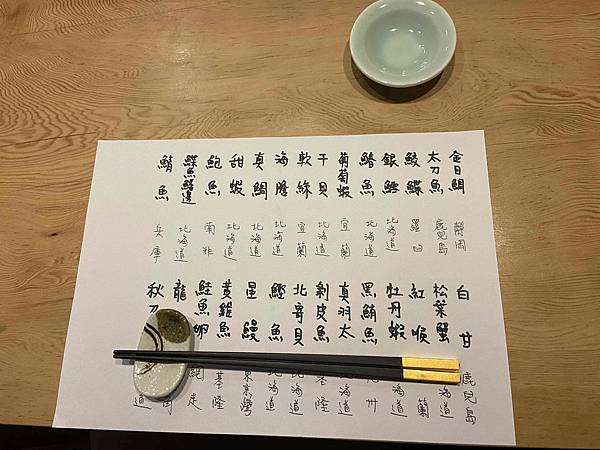 金目鯛 靜岡
太刀魚 鹿兒島
鮫鰈 羅臼
銀鱈 北海道
鰆魚 北海道
葡萄蝦 宜蘭
干貝 北海道
軟絲 宜蘭
海膽 北海道
真鯛 北海道
甜蝦 北海道
鮑魚 南非
鰈魚鰭邊 北海道
鯖魚 兵庫
白甘 鹿兒島
松葉蟹 海道
紅喉 蘭
牡丹蝦 海道
黑鮪魚 州
真羽太 海道
剝皮魚 隆
北寄貝 北海道
鰹魚 北海道
星鰻 東京灣
黃雞魚 基隆
鮭魚卵 走
龍
秋刀 道